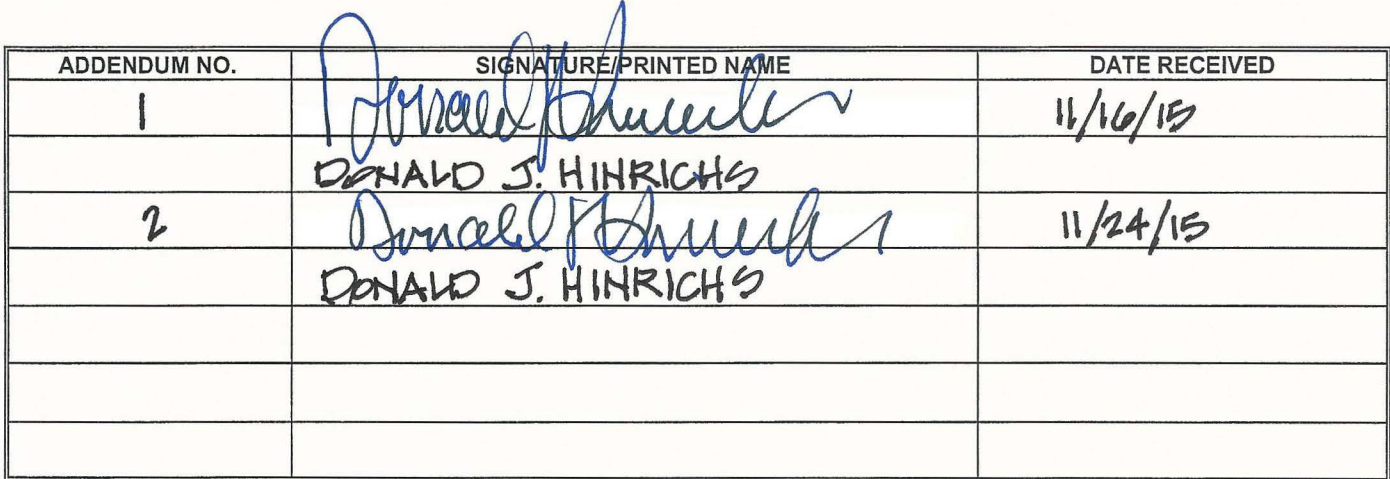 ADDENDUM NO. SIGNATURE/PRINTED NAME DATE RECEIVED
1 Donald J Hinrichs 11/16/15
DONALD J. HINRICHS
2 Donald J Hinrichs 11/24/15
DONALD J. HINRICHS